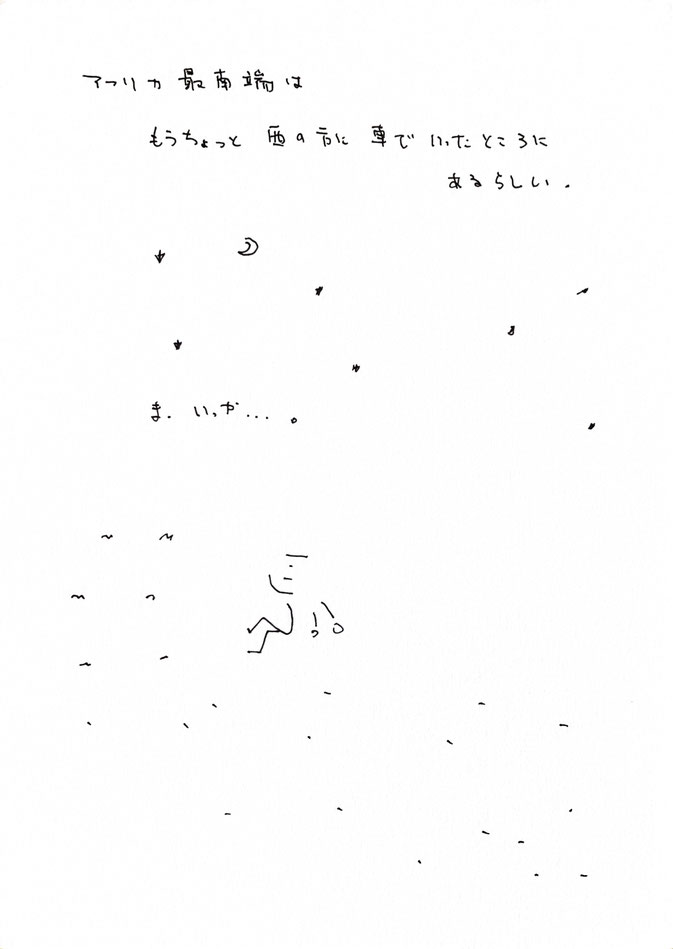 アフリカ最南端は
もうちょっと 西の方に 車で いったところに
あるらしい.
ま. いっか... 。